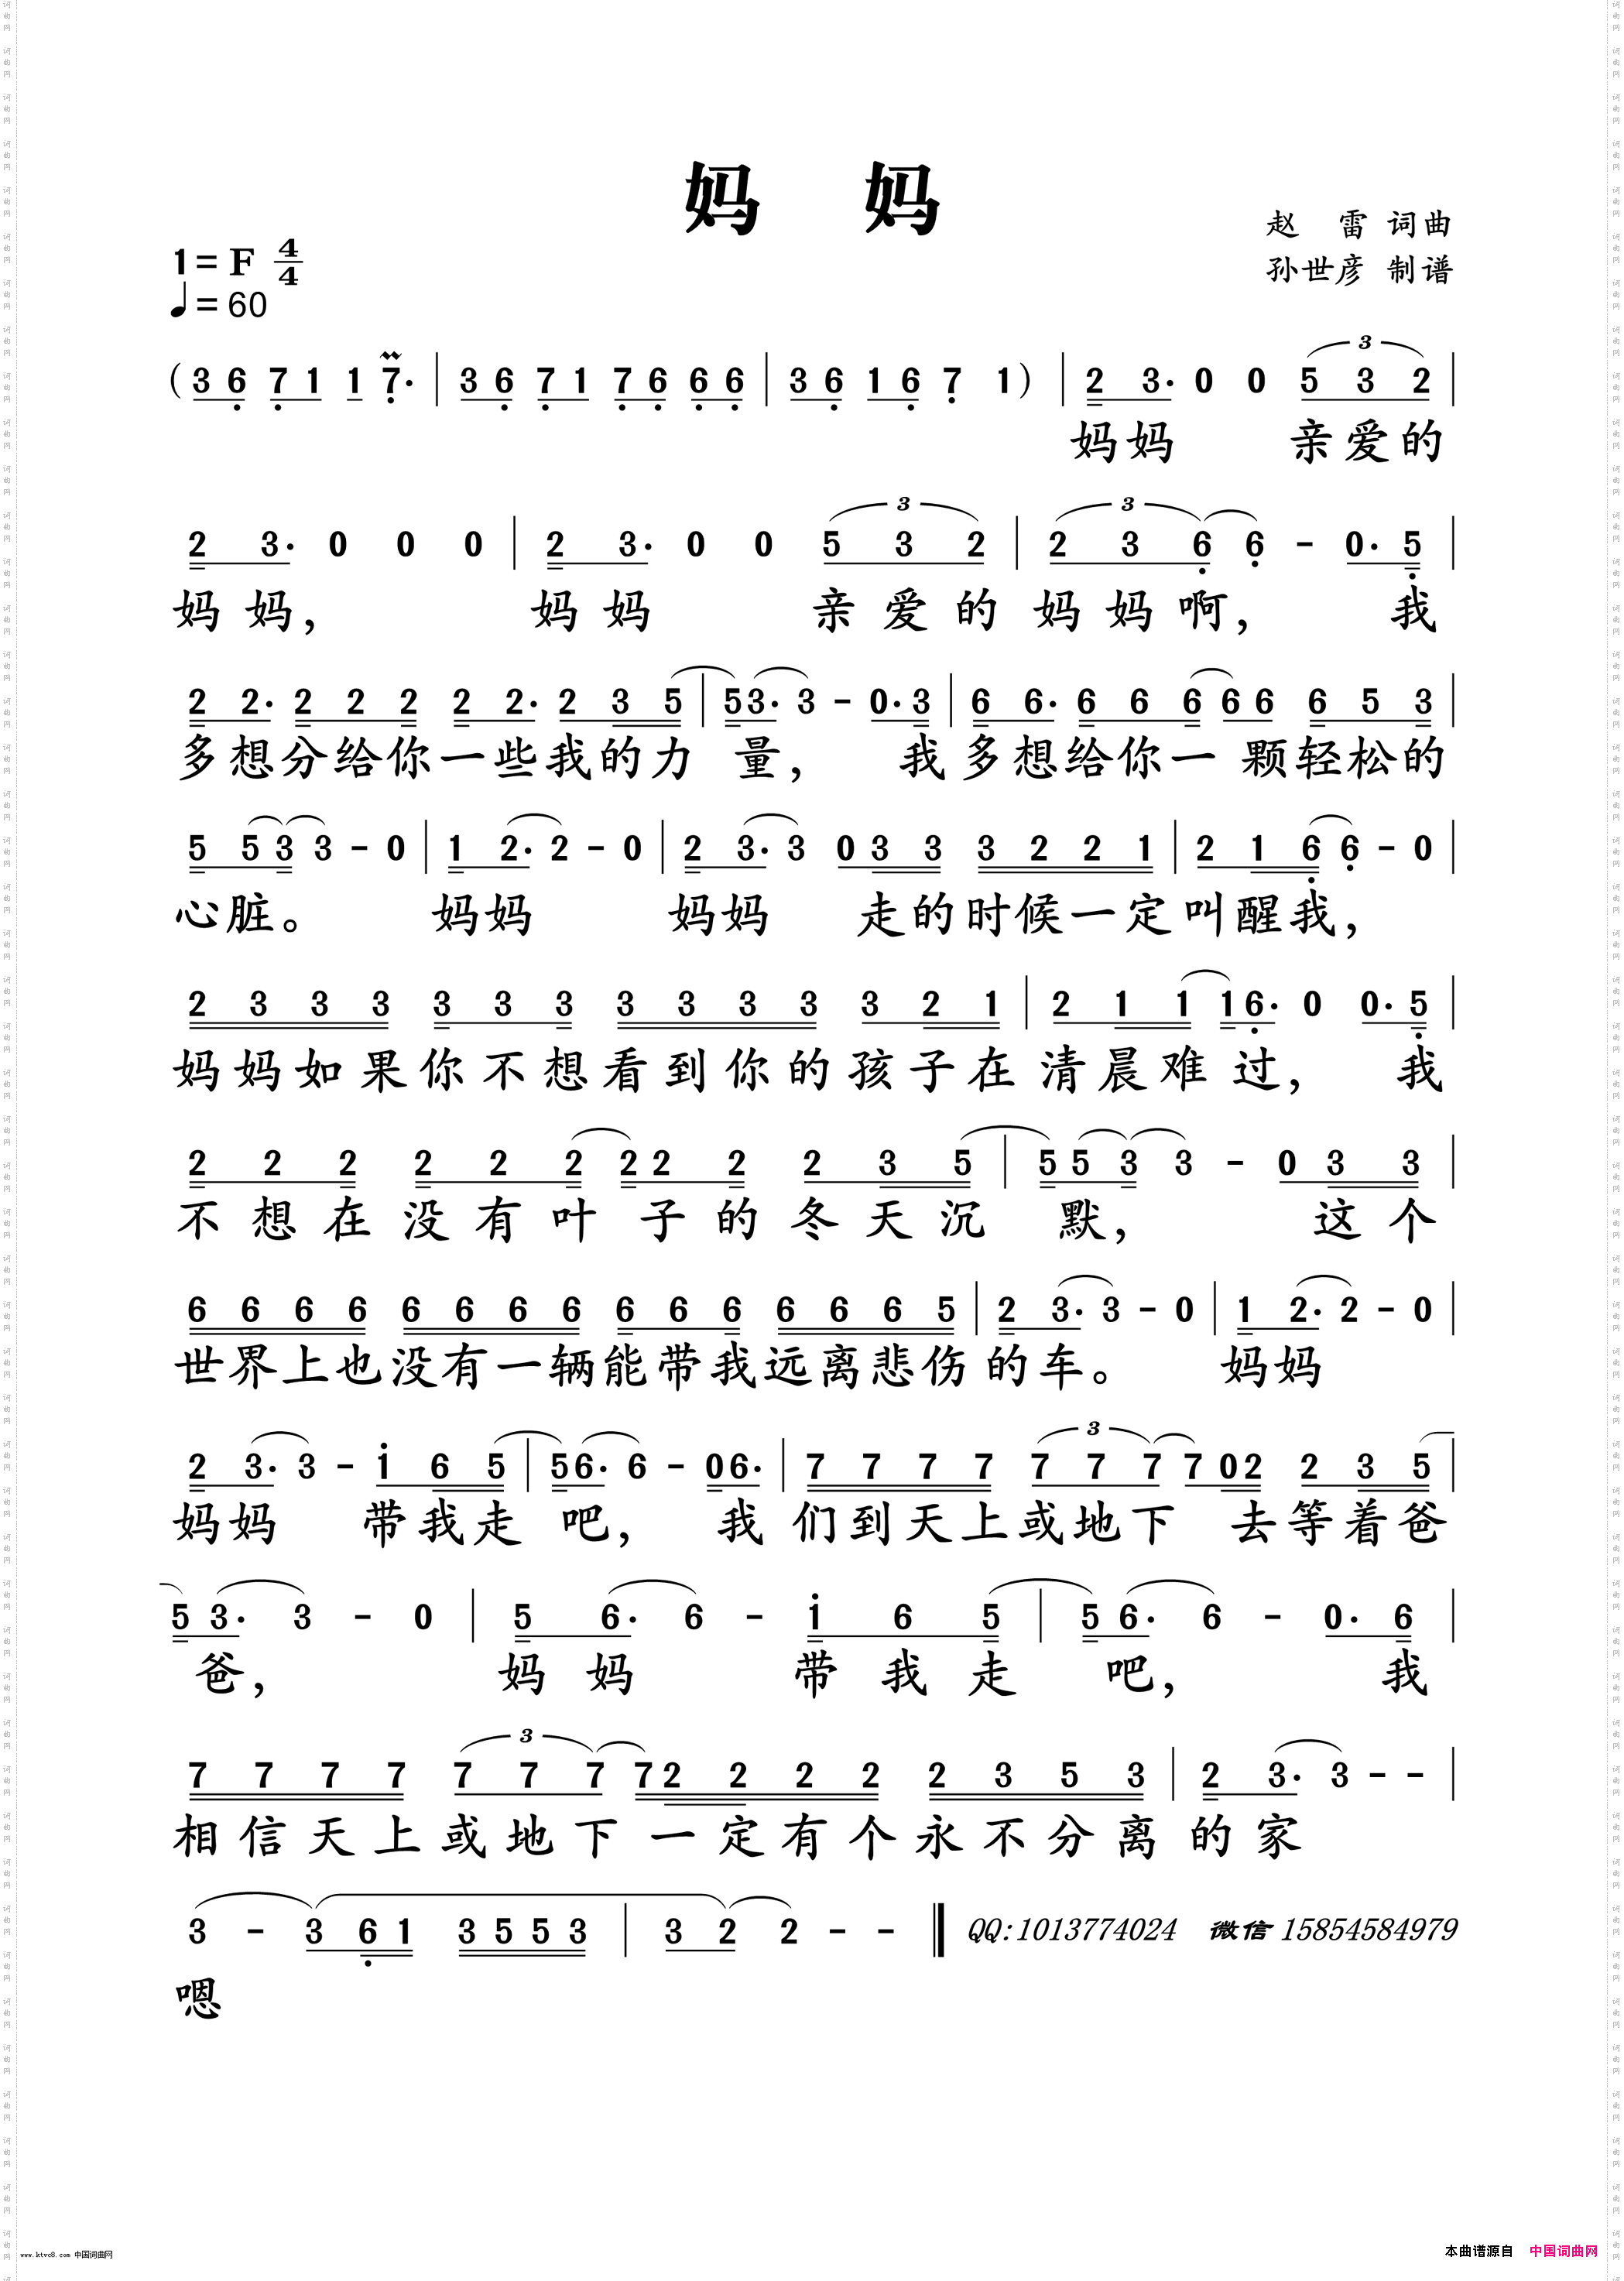 妈 妈
赵 雷 词曲
孙世彦 制谱
1= F 4/4
♩= 60
( 3 6 7 1 1 7. | 3 6 7 1 7 6 6 6 | 3 6 1 6 7 1 ) | 2 3. 0 0 5 3 2 |
妈妈 亲爱的
2 3. 0 0 0 | 2 3. 0 0 5 3 2 | 2 3 6 6 - 0. 5 |
妈 妈, 妈 妈 亲 爱 的 妈 妈 啊, 我
2 2. 2 2 2 2 2. 2 3 5 | 5 3. 3 - 0. 3 | 6 6. 6 6 6 6 6 6 5 3 |
多想分给你一些我的力 量, 我 多想给你一 颗轻松的
5 5 3 3 - 0 | 1 2. 2 - 0 | 2 3. 3 0 3 3 3 2 2 1 | 2 1 6 6 - 0 |
心脏。 妈妈 妈妈 走的时候一定叫醒我,
2 3 3 3 3 3 3 3 3 3 3 3 2 1 | 2 1 1 1 6. 0 0. 5 |
妈妈如果你不想看到你的孩子在清晨难 过, 我
2 2 2 2 2 2 2 2 2 2 3 5 | 5 5 3 3 - 0 3 3 |
不想在没有叶 子的冬天沉 默, 这个
6 6 6 6 6 6 6 6 6 6 6 6 6 6 5 | 2 3. 3 - 0 | 1 2. 2 - 0 |
世界上也没有一辆能带我远离悲伤的车。 妈妈
2 3. 3 - 1 6 5 | 5 6. 6 - 0 6. | 7 7 7 7 7 7 7 7 0 2 2 3 5 |
妈妈 带我走 吧, 我 们到天上或地下 去等着爸
5 3. 3 - 0 | 5 6. 6 - 1 6 5 | 5 6. 6 - 0. 6 |
爸, 妈 妈 带 我 走 吧, 我
7 7 7 7 7 7 7 7 2 2 2 2 2 3 5 3 | 2 3. 3 - - |
相信天上或地下 一定有个永不分离的家
3 - 3 6 1 3 5 5 3 | 3 2 2 - - ‖ QQ:1013774024 微信 15854584979
嗯
www.ktvc8.com 中国词曲网
本曲谱源自 中国词曲网